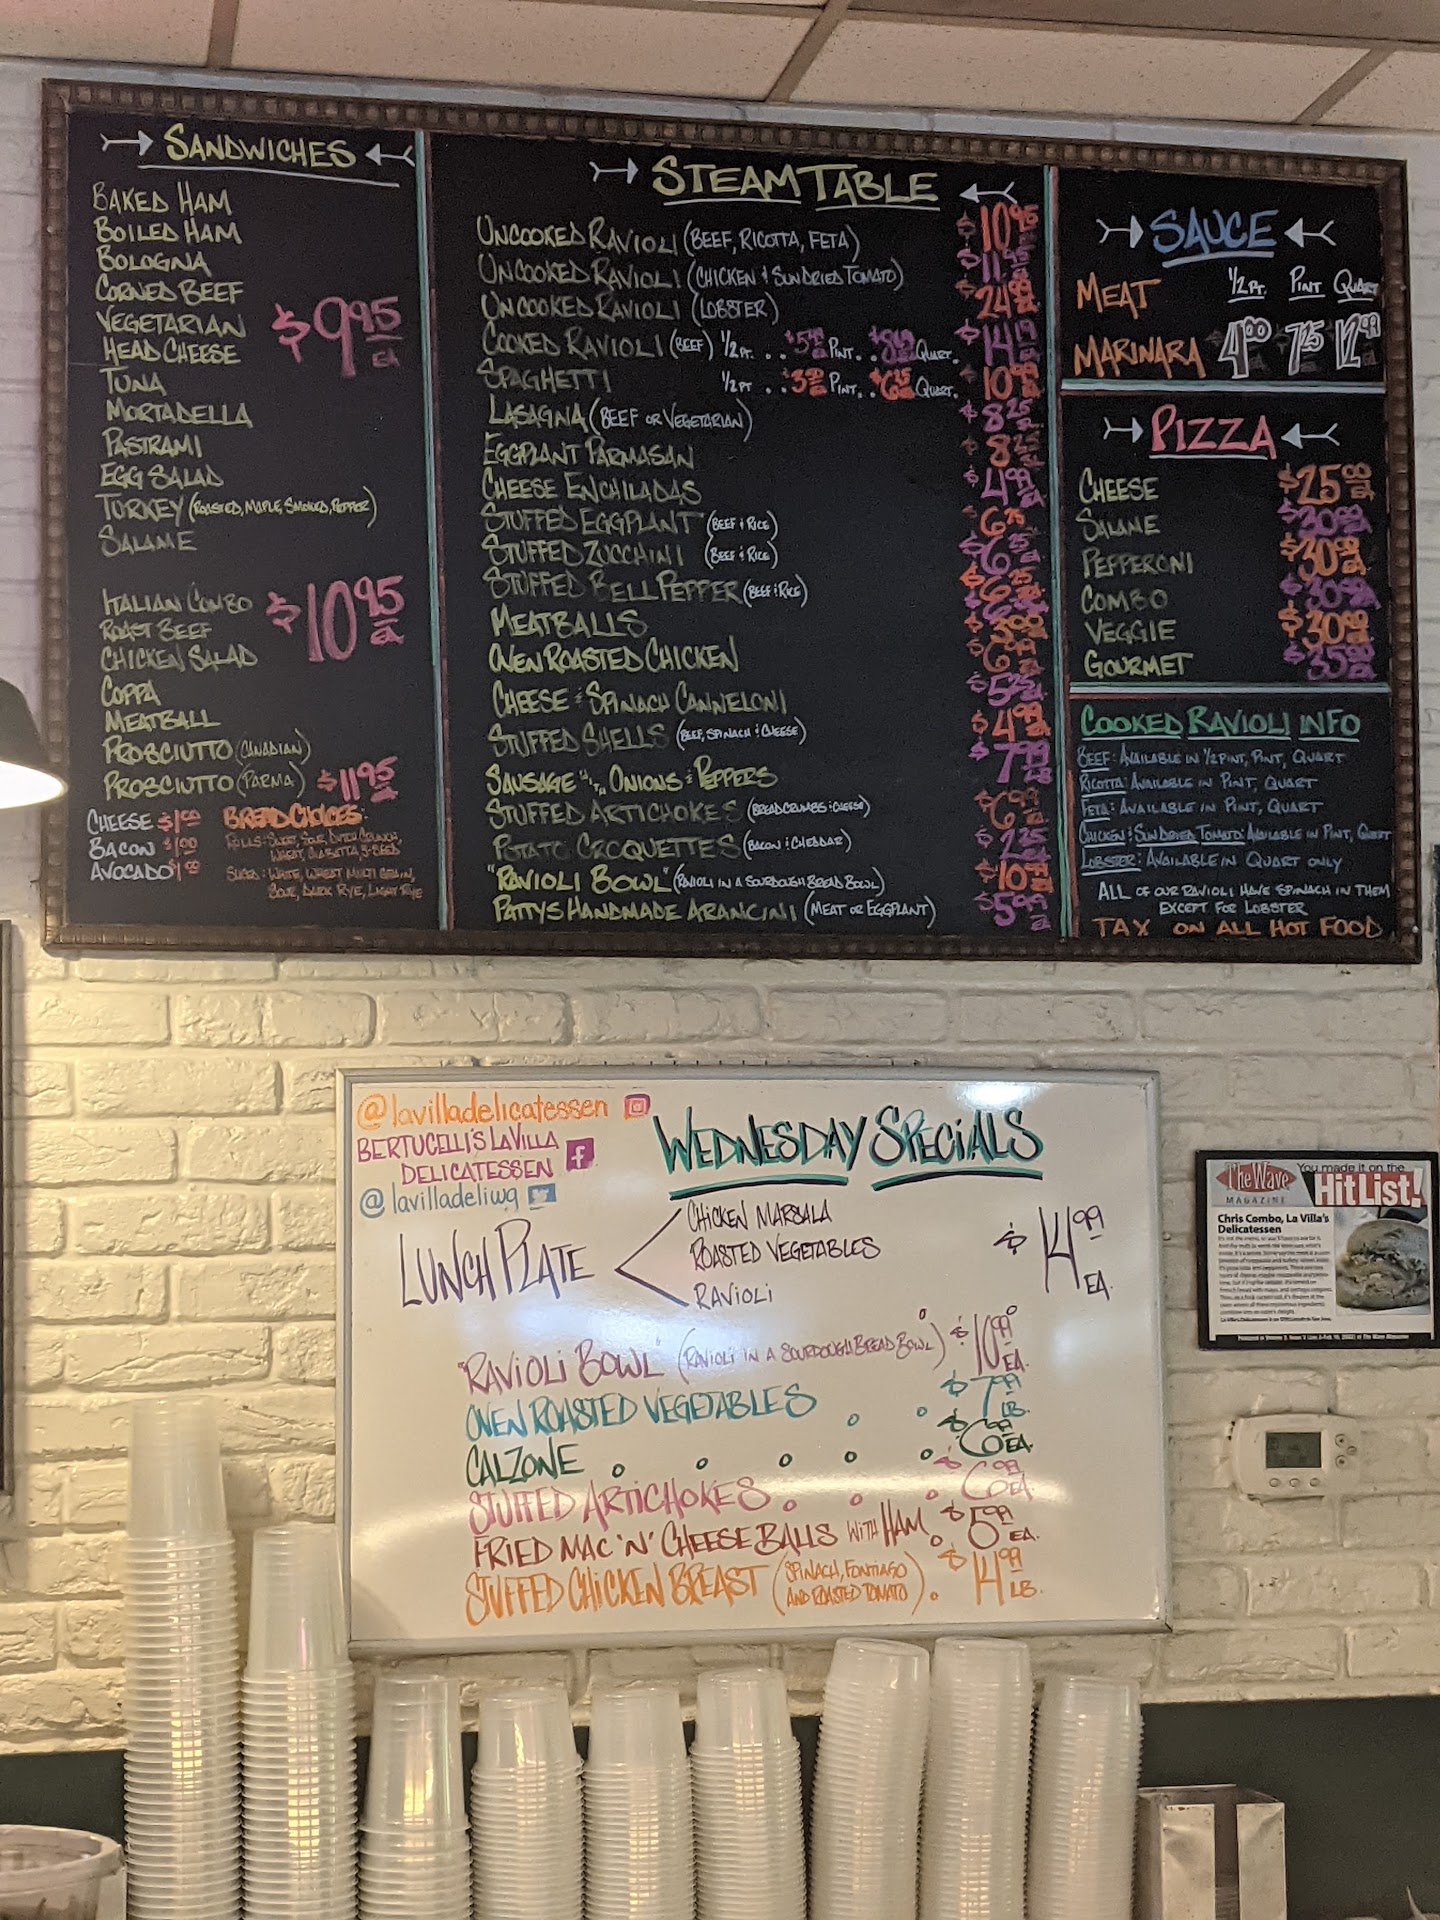 SANDWICHES
BAKED HAM
BOILED HAM
BOLOGNA
CORNED BEEF
VEGETARIAN
HEAD CHEESE
$9.95 EA
TUNA
MORTADELLA
PASTRAMI
EGG SALAD
TURKEY (ROASTED, MAPLE, SMOKED, PEPPER)
SALAME
ITALIAN COMBO
ROAST BEEF
CHICKEN SALAD
$10.95 EA
COPPA
MEATBALL
PROSCIUTTO (CANADIAN)
PROSCIUTTO (PARMA) $11.95
CHEESE $1.00
BACON $1.00
AVOCADO $1.00
BREAD CHOICES:
ROLLS: SWEET, SOUR, DUTCH CRUNCH,
WHEAT, CIABATTA, 3-SEED
SLICED: WHITE, WHEAT, MULTI GRAIN,
SOUR, DARK RYE, LIGHT RYE
STEAM TABLE
UNCOOKED RAVIOLI (BEEF, RICOTTA, FETA) $10.95
UNCOOKED RAVIOLI (CHICKEN & SUNDRIED TOMATO) $11.95
UNCOOKED RAVIOLI (LOBSTER) $24.99
COOKED RAVIOLI (BEEF) 1/2 PT. .. PINT. .. QUART. $14.19
SPAGHETTI 1/2 PT .. PINT. .. QUART. $10.99
LASAGNA (BEEF OR VEGETARIAN) $8.25
EGGPLANT PARMASAN $8.25
CHEESE ENCHILADAS $4.99 EA
STUFFED EGGPLANT (BEEF & RICE) $6.25
STUFFED ZUCCHINI (BEEF & RICE) $6.25
STUFFED BELL PEPPER (BEEF & RICE) $6.25
MEATBALLS
OVEN ROASTED CHICKEN
CHEESE & SPINACH CANNELONI
STUFFED SHELLS (BEEF, SPINACH & CHEESE) $4.99
SAUSAGE WITH ONIONS & PEPPERS $7.99 LB
STUFFED ARTICHOKES (BREADCRUMBS & CHEESE) $6.99
POTATO CROQUETTES (BACON & CHEDDAR) $2.25
"RAVIOLI BOWL" (RAVIOLI IN A SOURDOUGH BREAD BOWL) $10.99
PATTYS HANDMADE ARANCINI (MEAT OR EGGPLANT) $5.99
SAUCE
1/2 PT. PINT QUART
MEAT
MARINARA 4.00 7.25 12.99
PIZZA
CHEESE $25.00 EA
SALAME $30.00 EA
PEPPERONI $30.00 EA
COMBO $30.00 EA
VEGGIE $30.00 EA
GOURMET $35.00 EA
COOKED RAVIOLI INFO
BEEF: AVAILABLE IN 1/2 PINT, PINT, QUART
RICOTTA: AVAILABLE IN PINT, QUART
FETA: AVAILABLE IN PINT, QUART
CHICKEN & SUNDRIED TOMATO: AVAILABLE IN PINT, QUART
LOBSTER: AVAILABLE IN QUART ONLY
ALL OF OUR RAVIOLI HAVE SPINACH IN THEM
EXCEPT FOR LOBSTER
TAX ON ALL HOT FOOD
@lavilladelicatessen
BERTUCELLI'S LA VILLA
DELICATESSEN
@lavilladeliwg
WEDNESDAY SPECIALS
LUNCH PLATE
CHICKEN MARSALA
ROASTED VEGETABLES
RAVIOLI
$14.99 EA.
"RAVIOLI BOWL" (RAVIOLI IN A SOURDOUGH BREAD BOWL) $10.99 EA.
OVEN ROASTED VEGETABLES . . $7.99 LB.
CALZONE . . . . . $6.99 EA.
STUFFED ARTICHOKES . . . $6.99 EA
FRIED MAC 'N' CHEESE BALLS WITH HAM . $5.99 EA.
STUFFED CHICKEN BREAST (SPINACH, FONTIAGO AND ROASTED TOMATO) . $14.99 LB.
The Wave
MAGAZINE
You made it on the
Hit List!
Chris Combo, La Villa's
Delicatessen